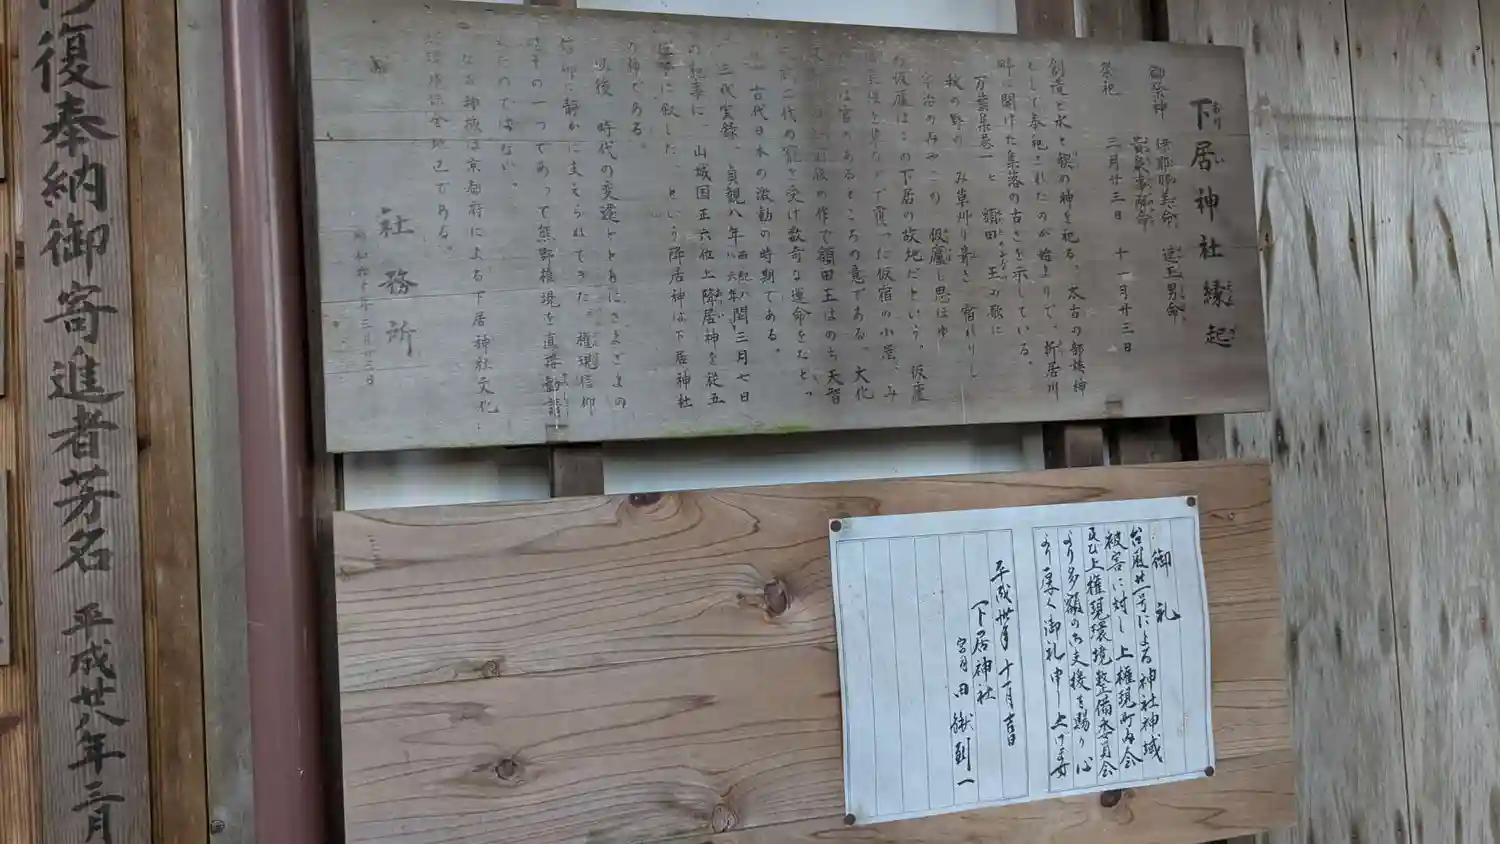 下居神社縁起
御祭神
伊耶那美命
速玉男命
祭祀
三月廿三日 十一月廿三日
創造と水と禊の神を祀る。太古の部族神
として奉祀されたのが始まりで、折居川
畔に開けた集落の古さを示している。
万葉集巻一に 額田 王の歌に
秋の野の み草刈り葺き 宿れりし
宇治のみやこの 仮廬し思ほゆ
の仮廬はこの下居の故地だという。仮廬
で葺った仮宿の小屋、み
は宮のあるところの意である。大化
の作で額田王はのち天智
二代の寵を受け数奇な運命をたどっ
古代日本の激動の時期である。
三代実録、貞観八年(西紀八六六年)閏三月七日
の記事に、山城国正六位上降居神を従五
位下に叙した、という降居神は下居神社
の神である。
以後 時代の変遷とともにさまざまの
信仰に静かに支えられてきた。権現信仰
もその一つであって熊野権現を直接勧請
したのではない。
なお神域は京都府による下居神社文化
環境保全地区である。
社務所
昭和六十年三月廿三日
修復奉納御寄進者芳名 平成廿八年三月
御礼
台風廿一号による神社神域
被害に対し上権現町内会
及び上権現環境整備委員会
より多額の御支援を賜り心
より厚く御礼申し上げます
平成卅年十一月吉日
下居神社
宮司